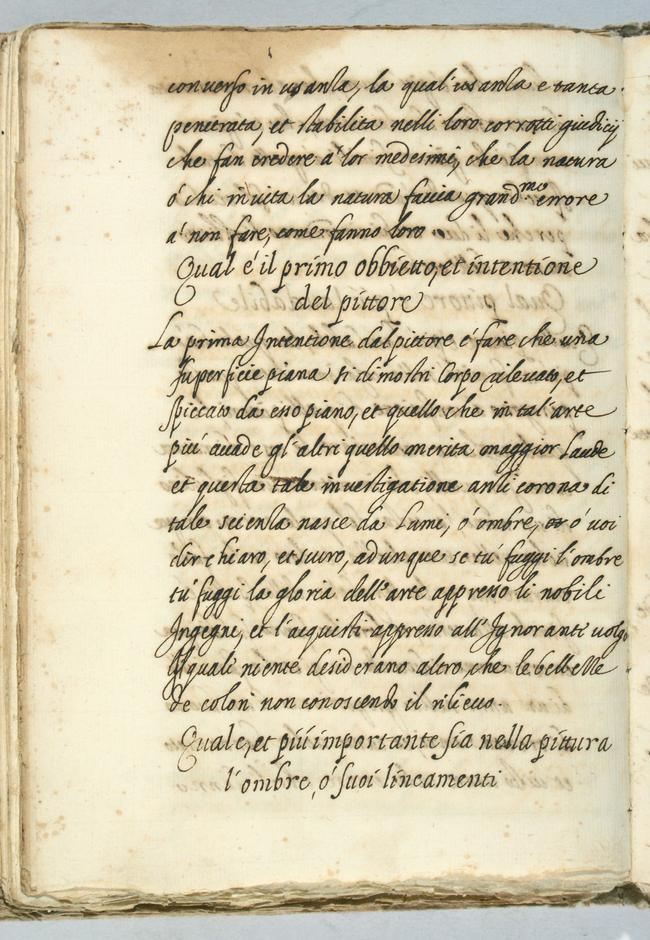 converso in usanza, la qual' usanza e tanta
penetrata, et stabilita nelli loro corrotti giudicij
che fan credere a' lor medesimi, che la natura
ó chi invita la natura faccia grand.mo errore
a' non fare, come fanno loro.
Qual é il primo obbietto, et intentione
del pittore
La prima Intentione dal pittore é fare che una
superficie piana si dimostri Corpo rilevato, et
spiccato da esso piano, et quello che in tal' arte
piú avade gl'altri quello merita maggior Laude
et questa tale investigatione anzi corona di
tale scienza nasce da Lumi, ó ombre, ó voi
dir chiaro, et scuro, adunque se tú fuggi l'ombre
tú fuggi la gloria dell'arte appresso li nobili
Ingegni, et l'acquisti appresso all' Ignoranti volgo
li quali niente desiderano altro, che le bellezze
de colori non conoscendo il rilievo.
Quale, et piú importante sia nella pittura
l'ombre, ó suoi lineamenti